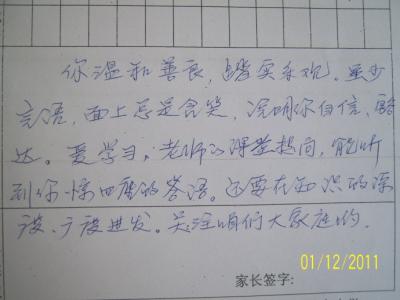 你温和善良，踏实乐观。虽少
言语，面上总是含笑，说明你自信、豁
达。爱学习，老师的课堂提问，能听
到你惊四座的答语。还要在知识的深
度、广度进发。关注咱们大家庭的。
01/12/2011
家长签字：